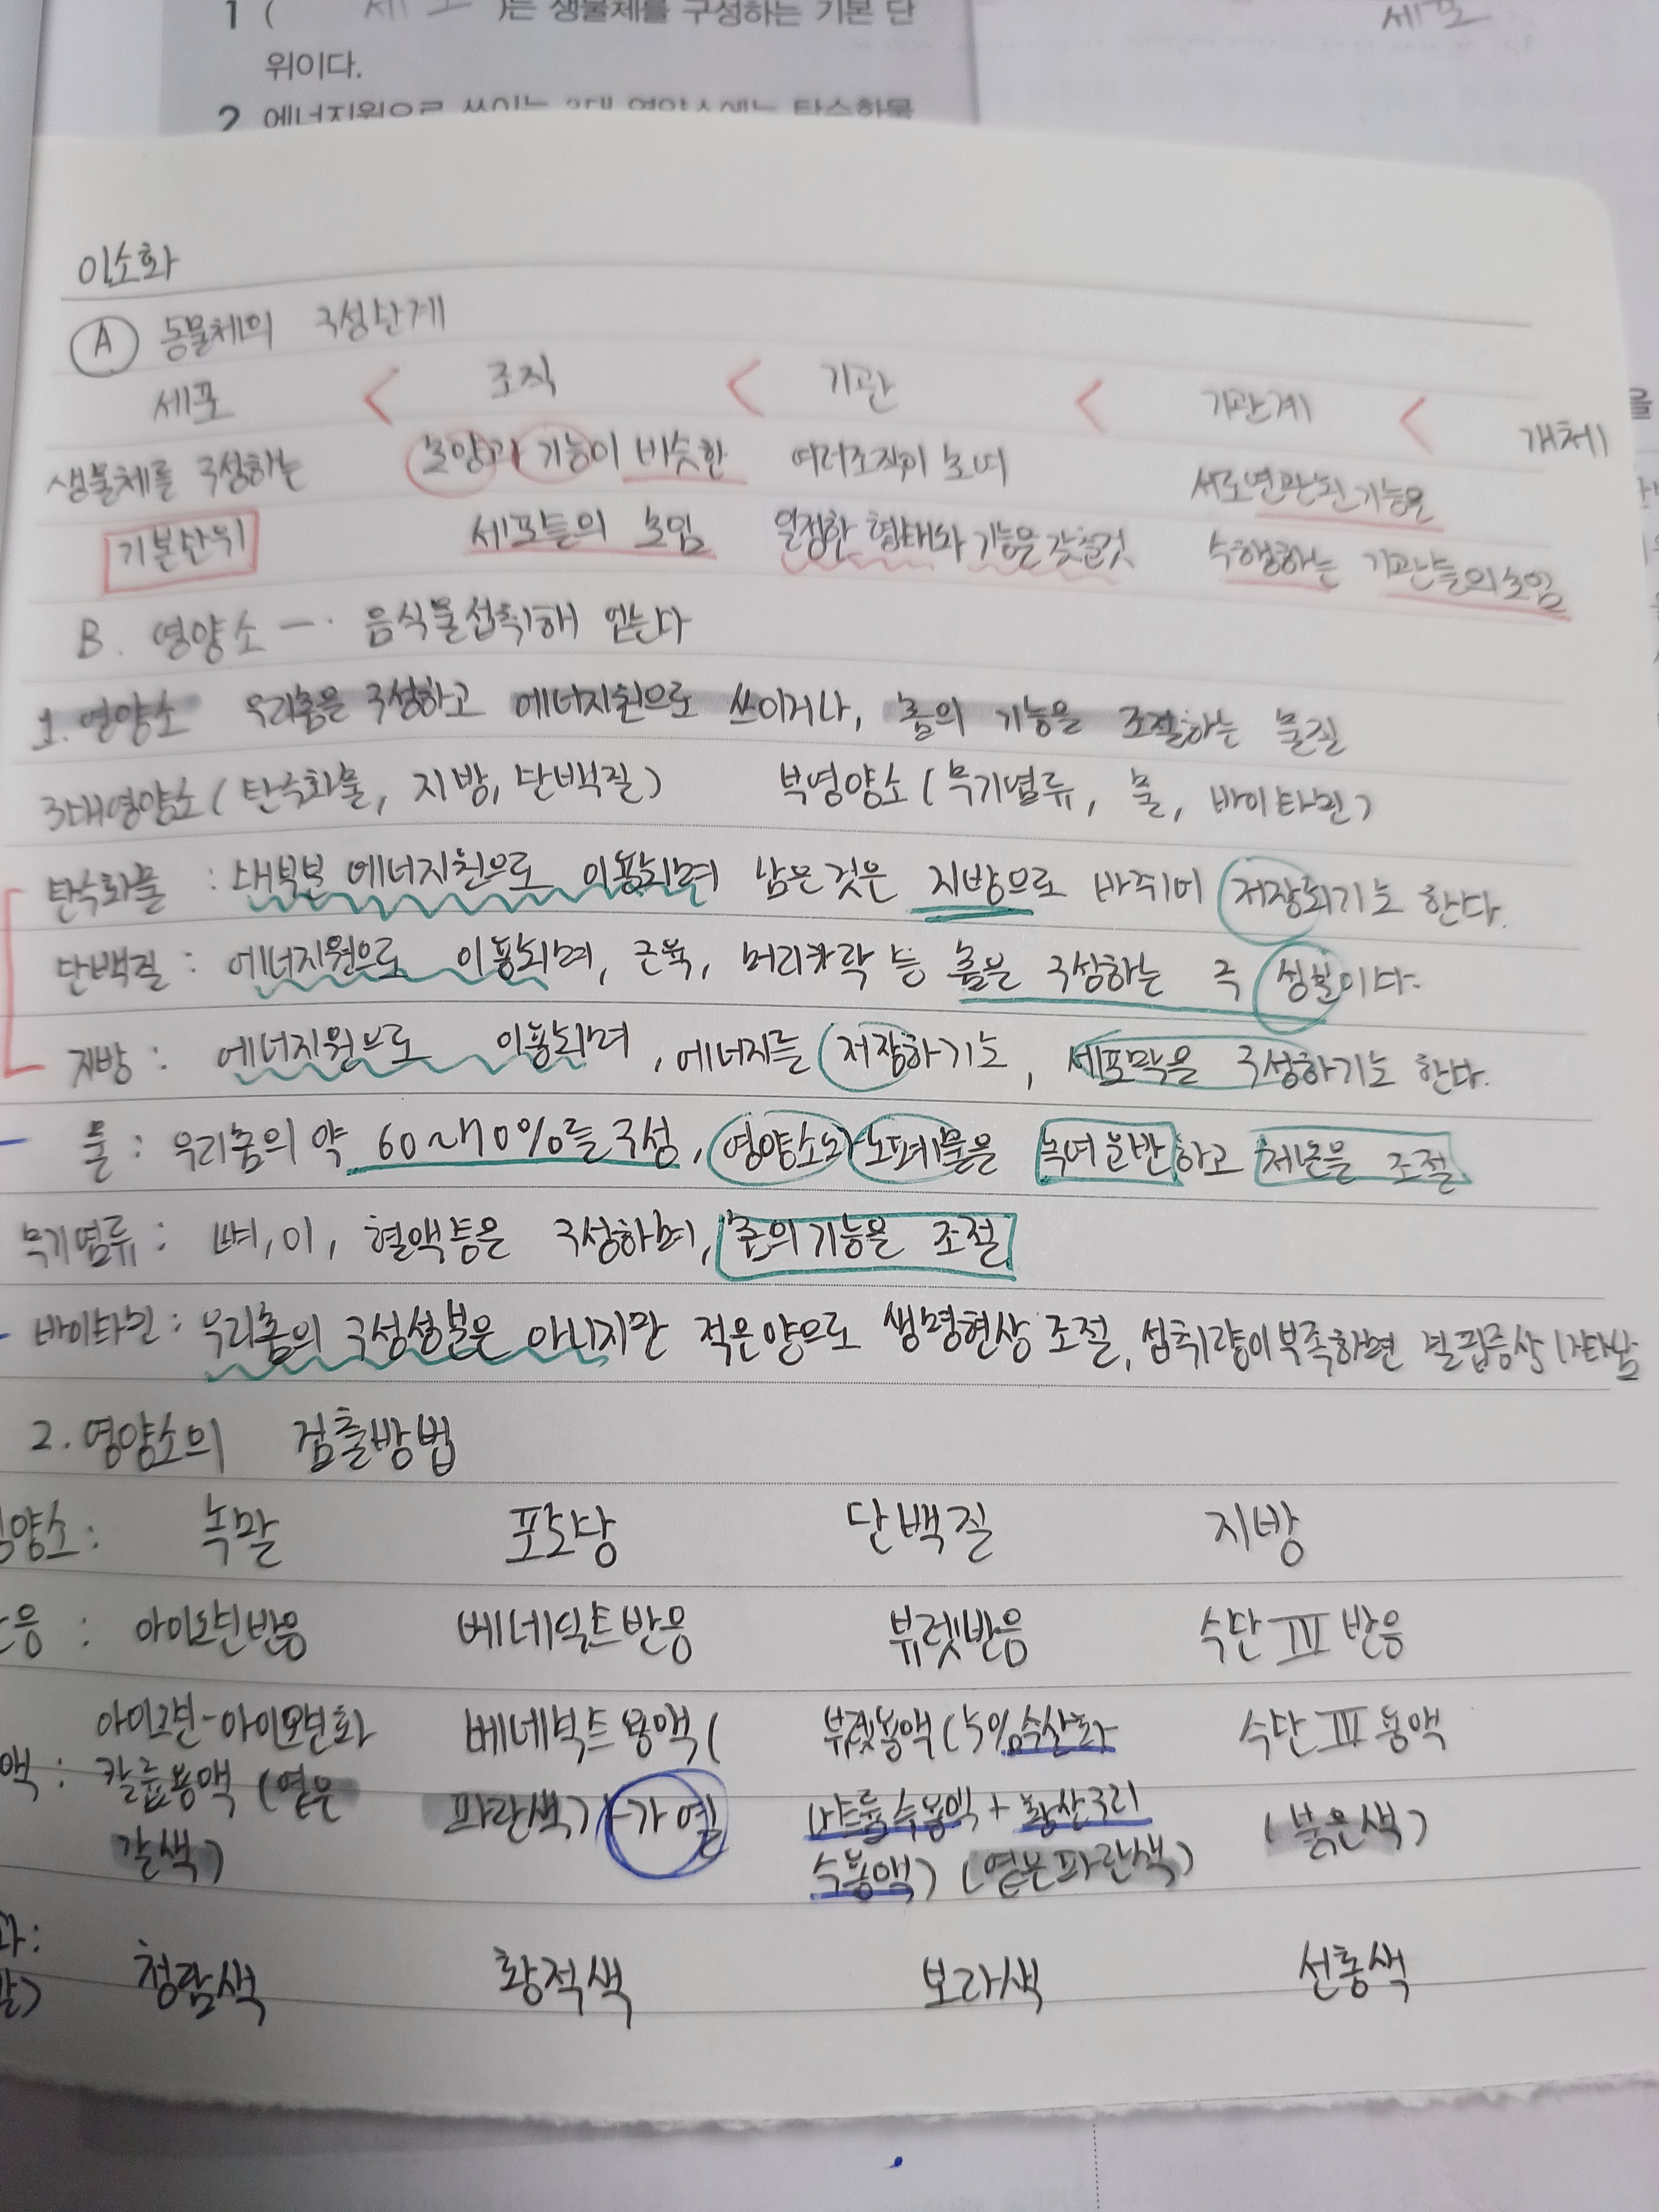 1 ( 세포 )는 생물체를 구성하는 기본 단
위이다.
세포
2 에너지원으로 쓰이는 3대 영양소에는 탄수화물
인소화
A 동물체의 구성단계
세포 < 조직 < 기관 < 기관계 < 개체
생물체를 구성하는 모양과 기능이 비슷한 여러조직이 모여 서로연관된기능을
기본단위 세포들의 모임 일정한 형태와 기능을 갖춘것 수행하는 기관들의모임
B. 영양소 - 음식물섭취해 얻는다
1. 영양소 우리몸을 구성하고 에너지원으로 쓰이거나, 몸의 기능을 조절하는 물질
3대영양소(탄수화물, 지방, 단백질) 부영양소(무기염류, 물, 바이타민)
탄수화물 : 대부분 에너지원으로 이용되며 남은것은 지방으로 바뀌어 저장되기도 한다.
단백질 : 에너지원으로 이용되며, 근육, 머리카락 등 몸을 구성하는 주 성분이다.
지방 : 에너지원으로 이용되며, 에너지를 저장하기도, 세포막을 구성하기도 한다.
물 : 우리몸의 약 60~70%를 구성, 영양소와 노폐물을 녹여운반하고 체온을 조절
무기염류 : 뼈, 이, 혈액등을 구성하며, 몸의기능을 조절
바이타민 : 우리몸의 구성성분은 아니지만 적은양으로 생명현상 조절, 섭취량이부족하면 결핍증상 나타남
2. 영양소의 검출방법
양소 : 녹말 포도당 단백질 지방
응 : 아이오딘반응 베네딕트반응 뷰렛반응 수단 III 반응
아이오딘-아이오딘화 베네딕트용액( 뷰렛용액(5%수산화 수단 III 용액
액 : 칼륨용액 (옅은 파란색)+가열 나트륨수용액 + 황산구리 (붉은색)
갈색) 수용액) (옅은파란색)
청람색 황적색 보라색 선홍색